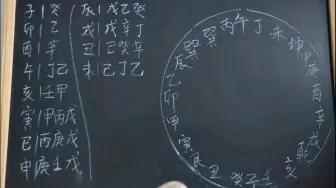 子|癸
卯|乙
酉|辛
午|丁己
亥|壬甲
寅|甲丙戊
巳|丙庚戊
申|庚壬戊
辰|戊乙癸
戌|戊辛丁
丑|己癸辛
未|己丁乙
巽巳丙午丁未坤申庚酉辛戌乾亥壬子癸丑艮寅甲卯乙辰